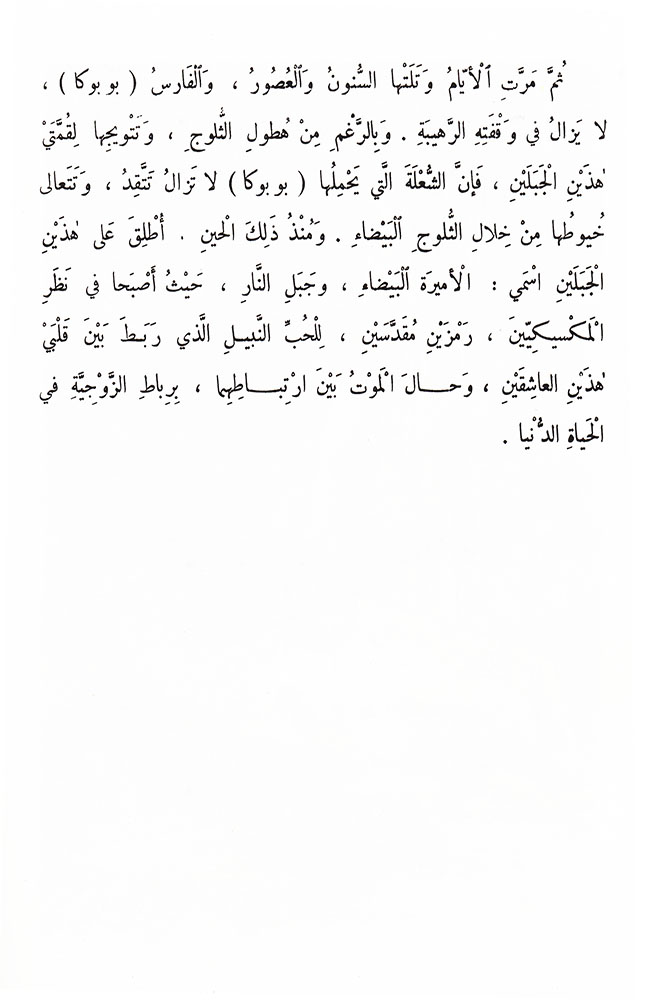 ثُمَّ مَرَّتِ ٱلْأَيّامُ وَتَلَتْها السُّنونُ وَٱلْعُصُورُ ، وَٱلْفَارسُ ( بو بوكا ) ،
لا يَزالُ في وَقْفَتِهِ الرَّهيبَةِ . وَبِالرَّغْمِ مِنْ هُطولِ الثُّلوجِ ، وَتَتْويجِها لِقُمَّتَيْ
هٰذَيْنِ الْجَبَلَيْنِ ، فَإنَّ الشُّعْلَةَ الَّتي يَحْمِلُها ( بو بوكا ) لا تَزالُ تَتَّقِدُ ، وَتَتَعالى
خُيوطُها مِنْ خِلالِ الثُّلوجِ ٱلْبَيْضاءِ . وَمُنْذُ ذَلِكَ الْحينِ . أُطْلِقَ عَلى هٰذَيْنِ
الْجَبَلَيْنِ اسْمَي : الْأَميرَة ٱلْبَيْضاءِ ، وَجَبَلِ النَّارِ ، حَيْثُ أَصْبَحا في نَظَرِ
الْمَكْسيكِيّينَ ، رَمْزَيْنِ مُقَدَّسَيْنِ ، لِلْحُبِّ النَّبيـلِ الَّذي رَبَـطَ بَيْنَ قَلْبَيْ
هٰذَيْنِ العاشِقَيْنِ ، وَحـــالَ الْمَوْتُ بَيْنَ ارْتِبـــاطِهِما ، بِرِباطِ الزَّوْجِيَّةِ في
الْحَياةِ الدُّنْيا .